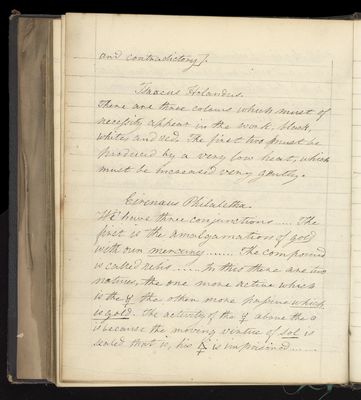 and contradictory].
Isaacus Holandus.
There are three colours which must of
necessity appear in the work, black,
white and red. The first two must be
produced by a very low heat, which
must be increased very gently.
Eirenaus Philaletha.
We have three conjunctions .... The
first is the amalgamation of gold
with our mercury ....... The compound
is called rebis ...... In this there are two
natures, the one more active which
is the ☿ the other more passive which
is gold. the activity of the ☿ above the
is because the moving virtue of sol is
sealed that is, his 🜍 is imprisoned ......